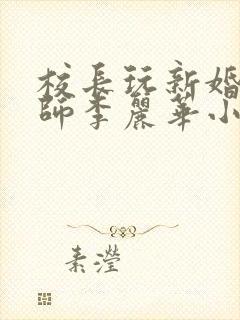 校長玩新婚
師李麗華小
素瀅